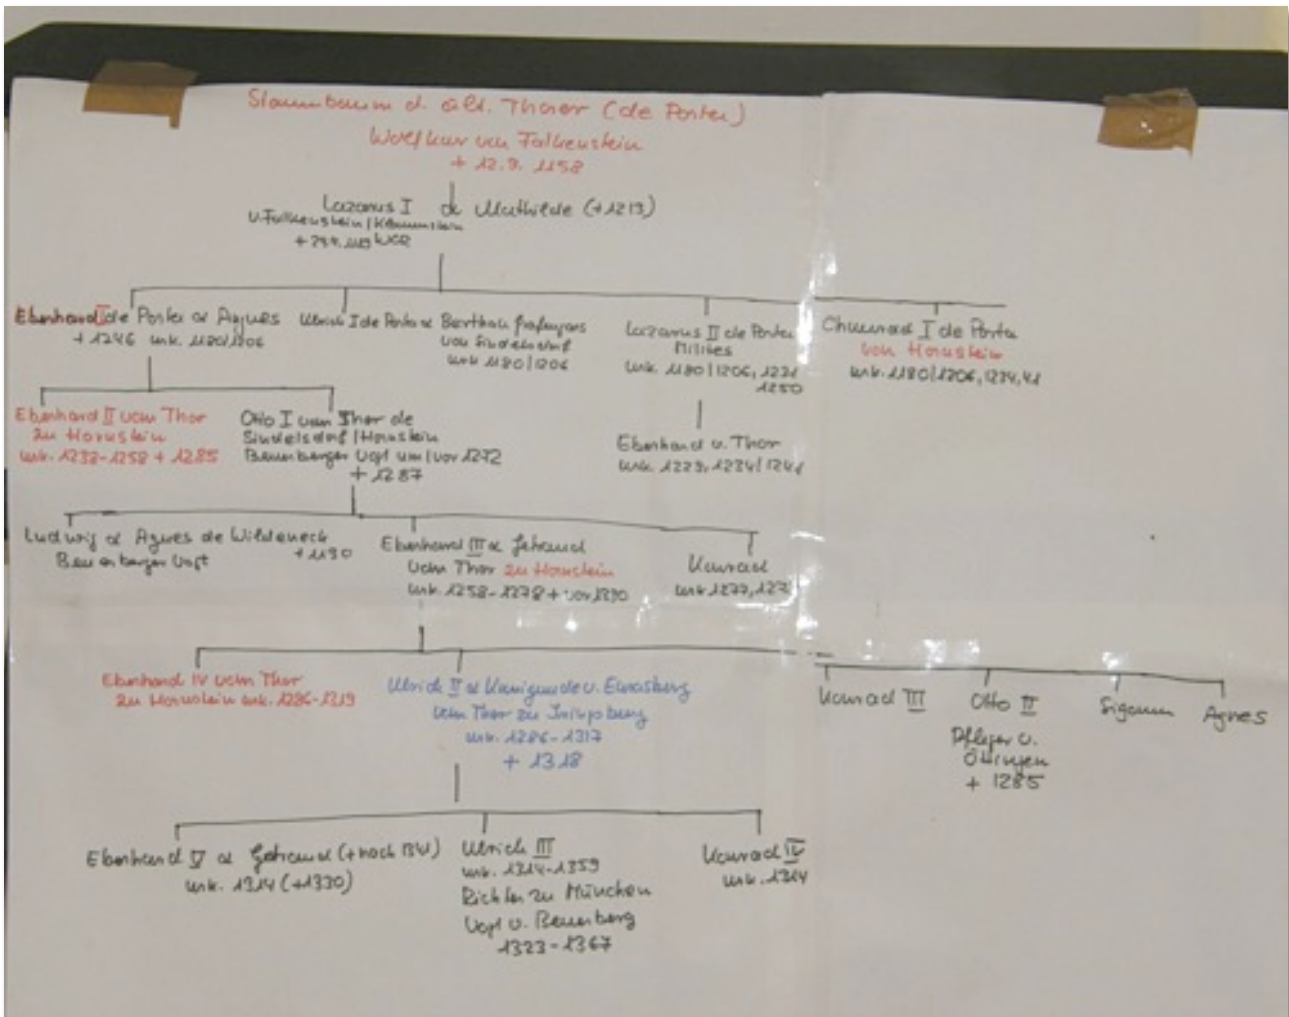 Stammbaum d. alt. Thorer (de Porta)
Wolfkar von Falkenstein
+ 12.9. 1158
Lazarus I & Mathilde (+1213)
v. Falkenstein /
Eberhard I de Porta & Agnes
+ 1246 urk. 1180/1206
Ulrich I de Porta & Bertha
von Sindelsdorf
urk 1180/1206
Lazarus II de Porta
Milites
urk. 1180/1206, 1231
1250
Chunrad I de Porta
von Hornstein
urk. 1180/1206, 1234, 41
Eberhard II vom Thor
zu Hornstein
urk. 1238-1258 + 1285
Otto I vom Thor de
Sindelsdorf / Hornstein
Beuerberger Vogt um/vor 1272
+ 1287
Eberhard v. Thor
urk. 1229, 1234/1241
Ludwig & Agnes de Wildeneck
Beuerberger Vogt
Eberhard III & Gebraud
vom Thor zu Hornstein
urk. 1258-1278 + vor
Konrad
urk 1277,
Eberhard IV vom Thor
zu Hornstein urk. 1286-1319
Ulrich II & Kunigunde v. Eurasburg
vom Thor zu
urk. 1286-1317
+ 1318
Konrad III
Otto II
Pfleger v.
Öttingen
+ 1285
Sigaun
Agnes
Eberhard V & Gebraud (+ nach
urk. 1314 (+1330)
Ulrich III
urk. 1314-1359
Richter zu München
Vogt v. Beuerberg
1323-1367
Konrad IV
urk. 1314